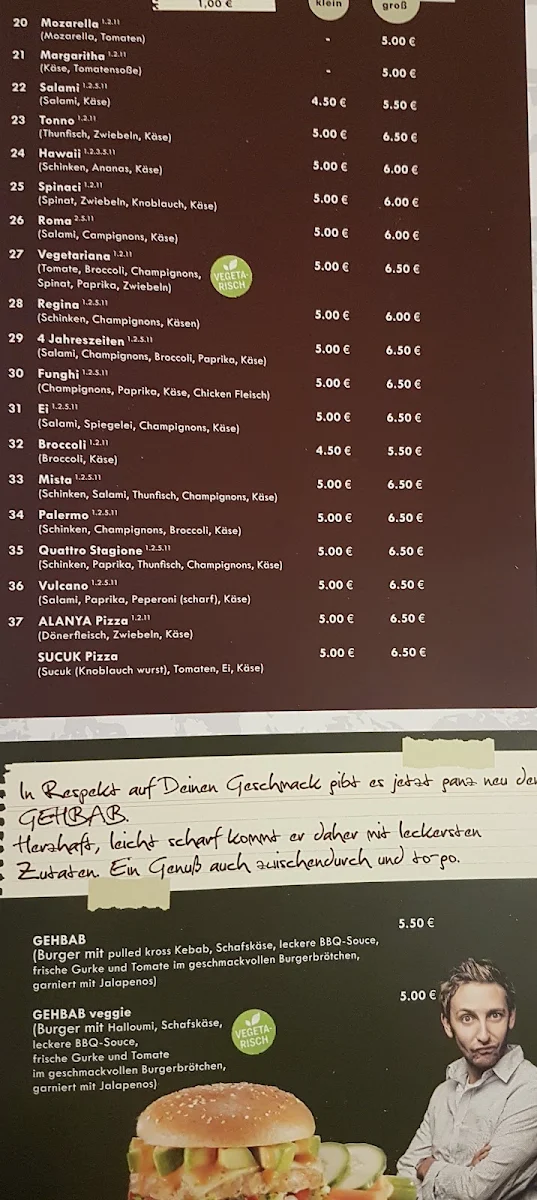 1,00 €
klein
groß
20 Mozarella 1.2.11
(Mozarella, Tomaten) - 5.00 €
21 Margaritha 1.2.11
(Käse, Tomatensoße) - 5.00 €
22 Salami 1.2.5.11
(Salami, Käse) 4.50 € 5.50 €
23 Tonno 1.2.11
(Thunfisch, Zwiebeln, Käse) 5.00 € 6.50 €
24 Hawaii 1.2.3.5.11
(Schinken, Ananas, Käse) 5.00 € 6.00 €
25 Spinaci 1.2.11
(Spinat, Zwiebeln, Knoblauch, Käse) 5.00 € 6.00 €
26 Roma 2.5.11
(Salami, Campignons, Käse) 5.00 € 6.00 €
27 Vegetariana 1.2.11
(Tomate, Broccoli, Champignons, 5.00 € 6.50 €
Spinat, Paprika, Zwiebeln)
VEGETA-
RISCH
28 Regina 1.2.5.11
(Schinken, Champignons, Käsen) 5.00 € 6.00 €
29 4 Jahreszeiten 1.2.5.11
(Salami, Champignons, Broccoli, Paprika, Käse) 5.00 € 6.50 €
30 Funghi 1.2.5.11
(Champignons, Paprika, Käse, Chicken Fleisch) 5.00 € 6.50 €
31 Ei 1.2.5.11
(Salami, Spiegelei, Champignons, Käse) 5.00 € 6.50 €
32 Broccoli 1.2.11
(Broccoli, Käse) 4.50 € 5.50 €
33 Mista 1.2.5.11
(Schinken, Salami, Thunfisch, Champignons, Käse) 5.00 € 6.50 €
34 Palermo 1.2.5.11
(Schinken, Champignons, Broccoli, Käse) 5.00 € 6.50 €
35 Quattro Stagione 1.2.5.11
(Schinken, Paprika, Thunfisch, Champignons, Käse) 5.00 € 6.50 €
36 Vulcano 1.2.5.11
(Salami, Paprika, Peperoni (scharf), Käse) 5.00 € 6.50 €
37 ALANYA Pizza 1.2.11
(Dönerfleisch, Zwiebeln, Käse) 5.00 € 6.50 €
SUCUK Pizza
(Sucuk (Knoblauch wurst), Tomaten, Ei, Käse) 5.00 € 6.50 €
In Respekt auf Deinen Geschmack gibt es jetzt ganz neu den
GEHBAB.
Herzhaft, leicht scharf kommt er daher mit leckersten
Zutaten. Ein Genuß auch zwischendurch und to-go.
GEHBAB 5.50 €
(Burger mit pulled kross Kebab, Schafskäse, leckere BBQ-Souce,
frische Gurke und Tomate im geschmackvollen Burgerbrötchen,
garniert mit Jalapenos)
GEHBAB veggie 5.00 €
(Burger mit Halloumi, Schafskäse,
leckere BBQ-Souce,
frische Gurke und Tomate
im geschmackvollen Burgerbrötchen,
garniert mit Jalapenos)
VEGETA-
RISCH